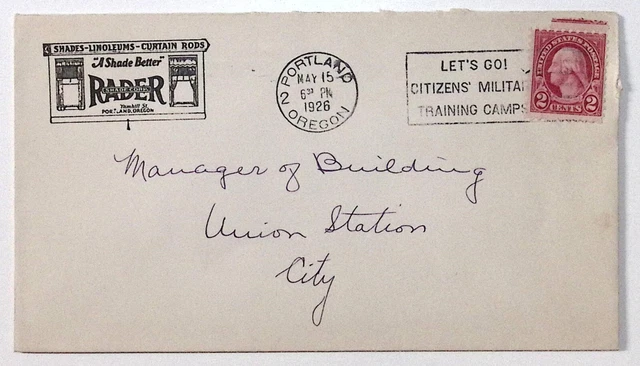 SHADES-LINOLEUMS-CURTAIN RODS
"A Shade Better"
RADER
SHADE CORP.
Yamhill St.
PORTLAND, OREGON
PORTLAND
MAY 15
6 30 PM
1926
2 OREGON
LET'S GO!
CITIZENS' MILITA
TRAINING CAMPS
UNITED STATES POSTAGE
2 CENTS 2
Manager of Building
Union Station
City